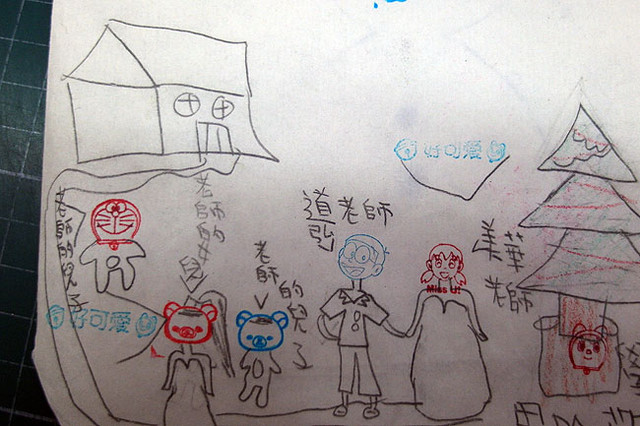 好可愛
道弘老師
美華老師
老師的女兒
老師的兒子
老師的兒子
好可愛
Miss U!